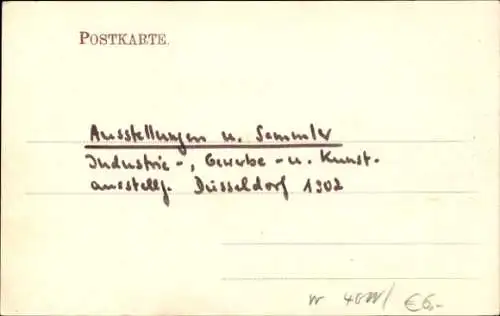 POSTKARTE.
Ausstellungen u. Sammler
Industrie-, Gewerbe- u. Kunst-
ausstellg. Düsseldorf 1902
€6,-